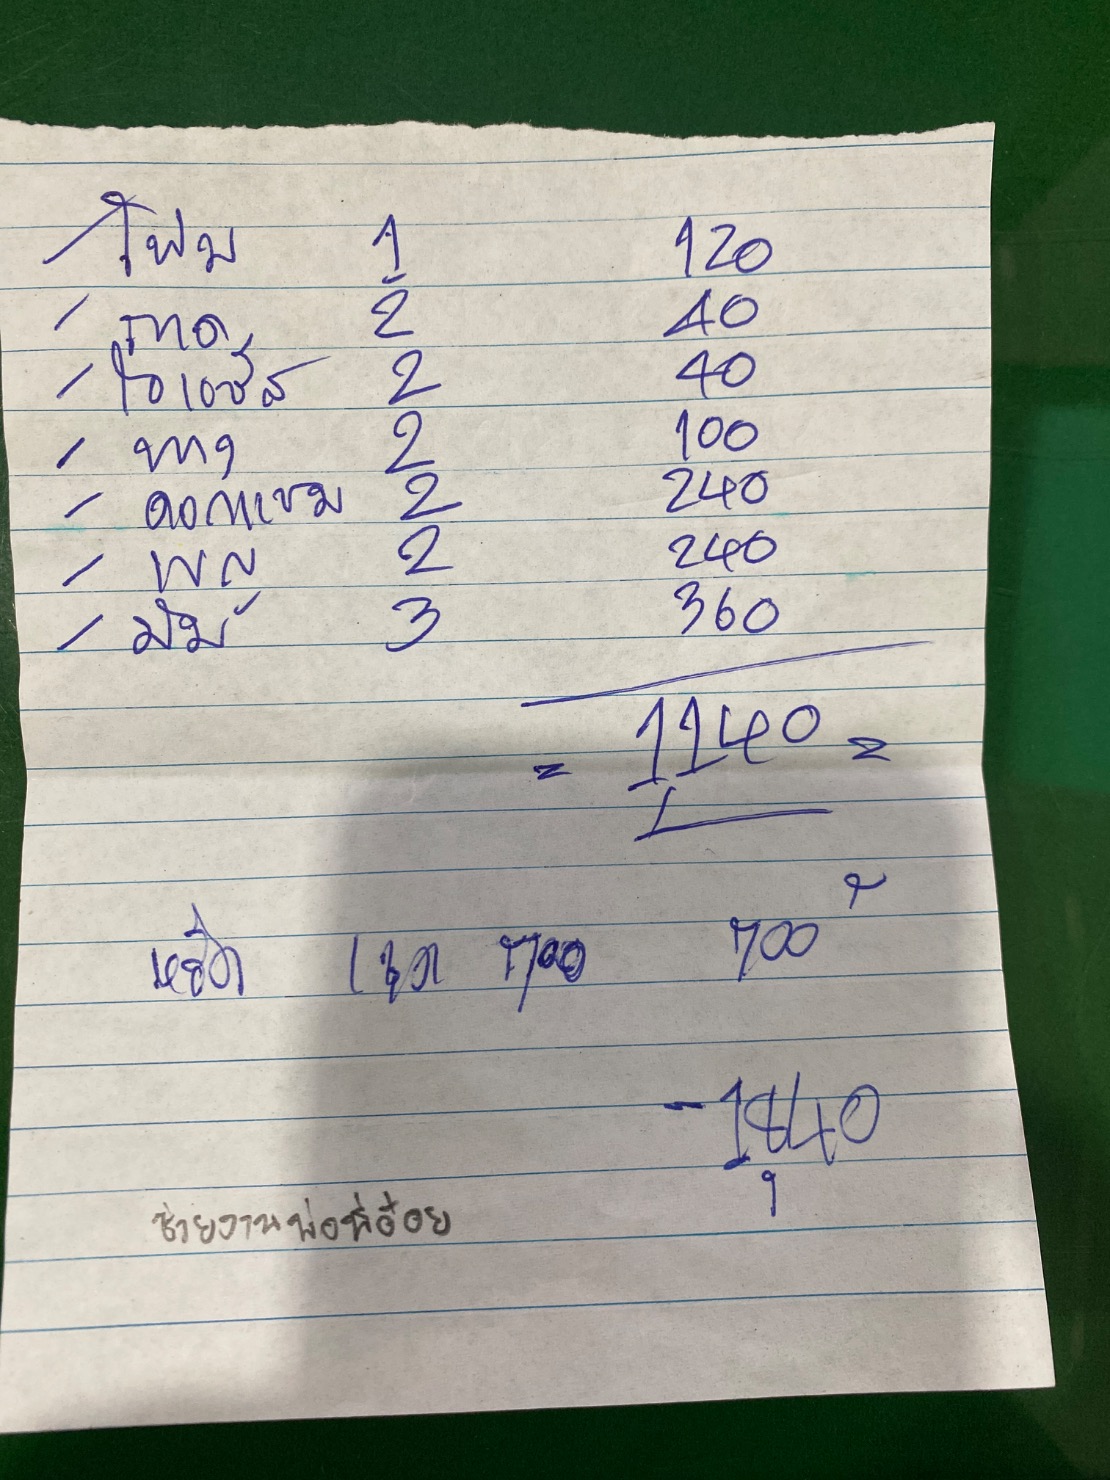 โฟม 1 120
ถาด 2 40
โอเอซีส 2 40
2 100
ดอกแขม 2 240
2 240
มัม 3 360
= 1140 =
หรีด 1 ชุด 700 700
- 1840
ช่วยงานพ่อพี่อ้อย